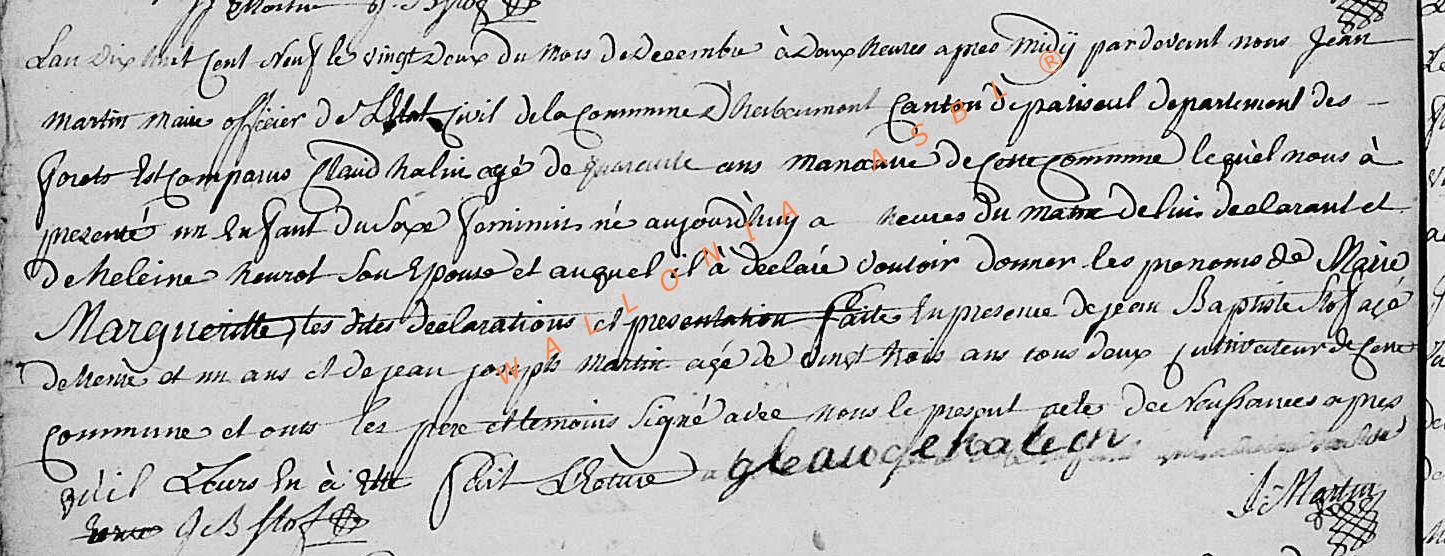 J Martin J. B Stof
Lan Dix huit Cent Neuf le vingt Deux du Mois de Decembre à Doux heures apres Midÿ pardevant nous Jean
Martin Maire officier de L'Etat Civil de la Commune D'herbeumont Canton de paliseul departement des
forets Est Comparus Claud halin agé de quarente ans Manoeuvre de Cette Commune lequel nous à
presenté un Enfant du Sexe feminin né aujourd'huy a heures du matin de lui declarant et
de heleine heurot Son Epouse et auquel il à declaré vouloir donner les prenoms de Marie
Margueritte, les dites declarations et presentation faite En presence de jean Baptiste Stof agé
de trente et un ans et de jean joseph Martin agé de vingt trois ans tous deux Cultivateur de Cette
Commune et onts les pere et temoins Signé avec nous le present acte de Naissances apres
qu'il Leurs En à Ette fait Lecture gleaudehalign
J B Stof J Martin
WALLONIA ASBL ®